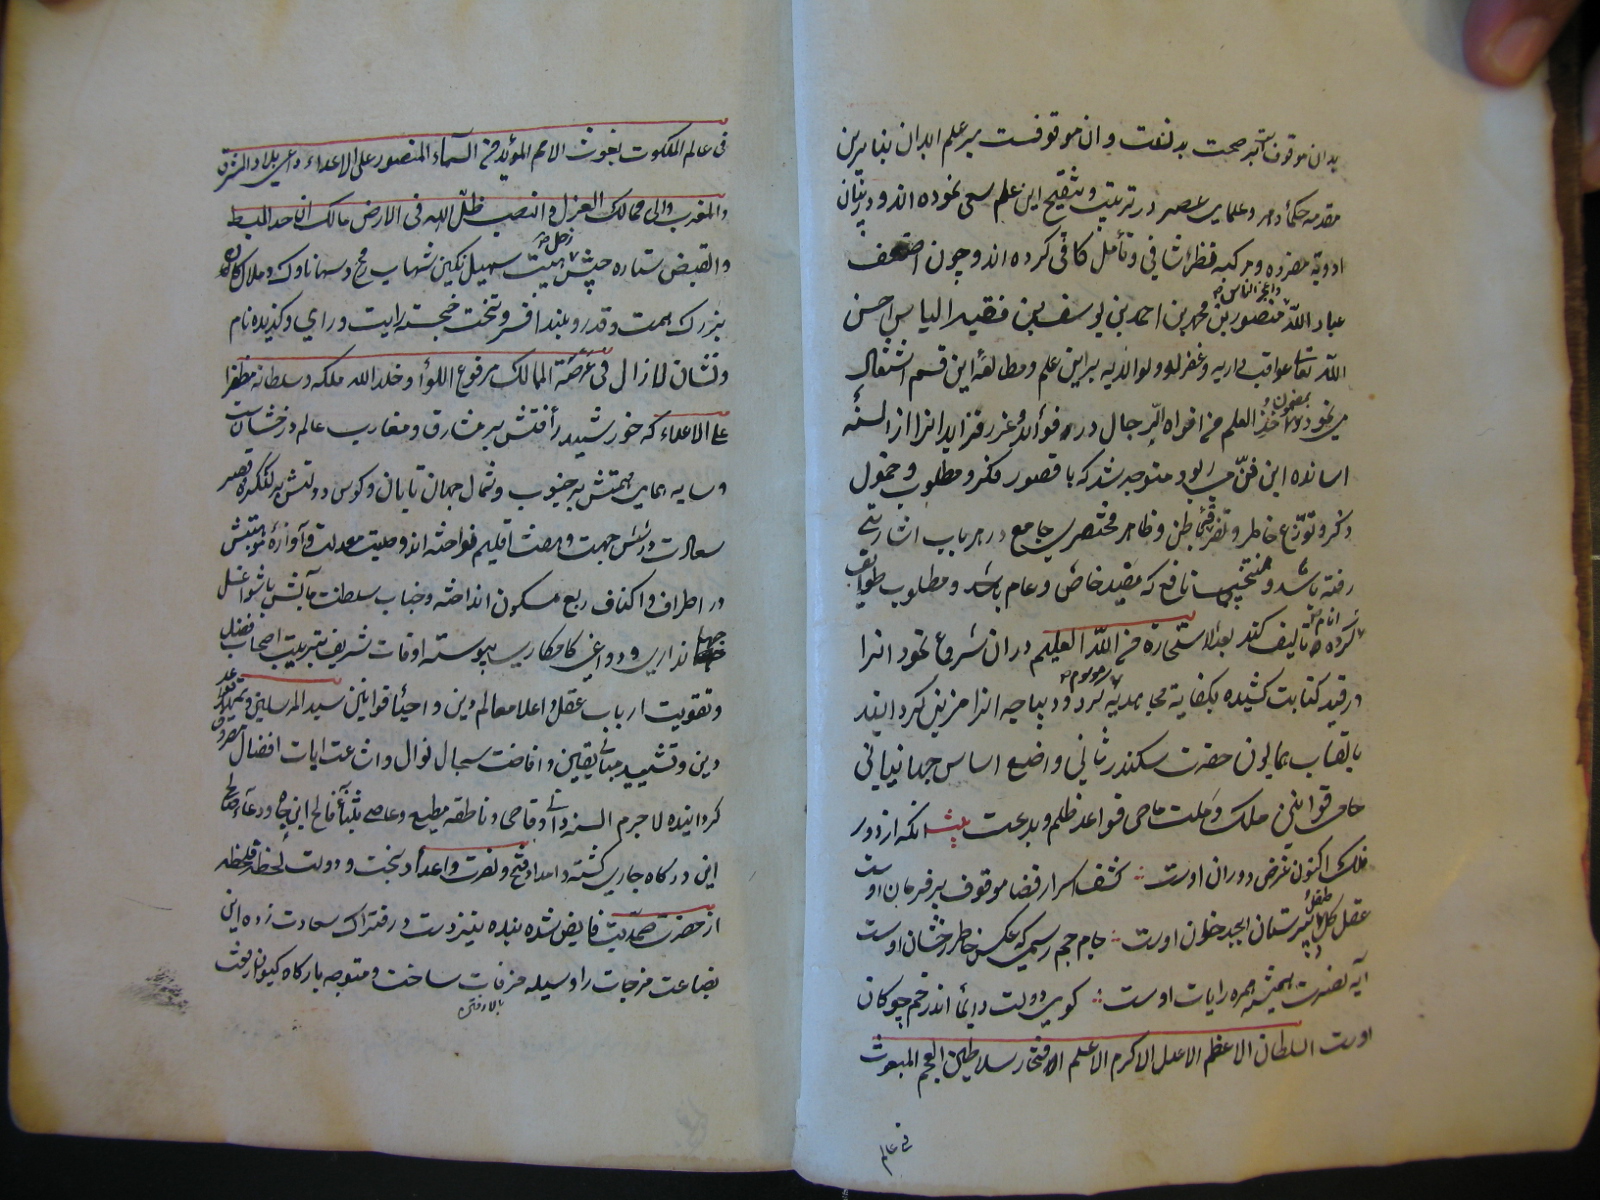 بدان موقوف است بر صحت بدنست و ان موقوفست بر علم ابدان بنابرین
مقدمه حکماء دهر و علمای عصر در ترتیب و تنقیح این علم سعی نموده اند و در بیان
ادویه مفرده و مرکبه نظر شافی و تأمل کافی کرده اند و چون اضعف
عباد الله و احقر الناس منصور بن محمد بن احمد بن یوسف بن فقیه الیاس احسن
الله تعالی عواقب داریه و غفر له و لوالدیه برین علم و مطالعه این قسم اشتغال
می نمود و بمضمون خذ العلم من افواه الرجال درر فوائد و غرر فرائد انرا از السنه
اساتذه این فن می ربود متوجه شد که با قصور فکر و مطلوب و خمول
ذکر و توزع خاطر و تفرق باطن و ظاهر مختصری جامع در هر باب اشارتی
رفته باشد و منتخبی نافع که مفید خاص و عام باشد و مطلوب طوایف
انام کرده تالیف کند بعد الاستخارة من الله العلیم در ان شروع نمود انرا
در قید کتابت کشیده بکفایه مجاهدیه موسوم کرد و دیباجه انرا مزین کردانید
بالقاب همایون حضرت سکندر ثانی واضع اساس جهانبانی
حامی قوانین ملک و ملت ماحی قواعد ظلم و بدعت بیت انکه از دور
فلک اکنون غرض دوران اوست کشف اسرار قضا موقوف بر فرمان اوست
عقل کل طفل دبیرستان ابجد خوان اوست جام جم رسمی که عکس خاطر رخشان اوست
آیه نصرت همیشه همره رایات اوست کوی دولت دایماً اندر خم چوکان
اوست السلطان الاعظم الاعدل الاکرم الاعلم الافتخار سلاطین العجم المبعوث
فی عالم
فی عالم الملکوت بغوث الامم المؤید من السماء المنصور علی الاعداء والی بلاد المشرق
والمغرب والی ممالک العزل و النصب ظل الله فی الارض مالک ازمة البسط
و القبض ستاره جیش زحل هیبت سهیل نکین شهاب رمح و سها ناوک و هلال کمان
بزرک همت و قدر و بلند افسر و تخت خجسته رایت و رای و کزیده نام
و نشان لا زال فی عرصة الممالک مرفوع اللواء و خلد الله ملکه و سلطانه مظفرا
علی الاعداء که خورشید رأفتش بر مشارق و مغارب عالم درخشانست
و سایه همای همتش بر جنوب و شمال جهان تابان و کوس دولتش بر کنکره قصر
سعادت در شش جهت و هفت اقلیم نواخته اند وصیت معدلت و آوازه موهبتش
در اطراف و اکناف ربع مسکون انداخته و جناب سلطنت مآبش با شواغل
جهانداری و دواعی کامکاری پیوسته اوقات شریف بتربیت اصحاب فضل
و تقویت ارباب عقل و اعلا معالم دین و احیاء قوانین سید المرسلین و تمهید قواعد
دین و تشیید مبانی یقین و افاضت سجال نوال و اشاعت ایات افضال مصروف
کردانیده لا جرم السنه دانی و قاصی و ناطقه مطیع و عاصی بثناء فایح این جاه و دعاء صالح
این درکاه جاری کشته و امداد فتح و نصرت و اعداد بخت و دولت لحظه فلحظه
از حضرت صمدیت فایض شده بنده نیز دست در فتراک سعادت زده این
بضاعت مزجات را وسیله مزیات ساخت و متوجه بارکاه کیوان رفعت